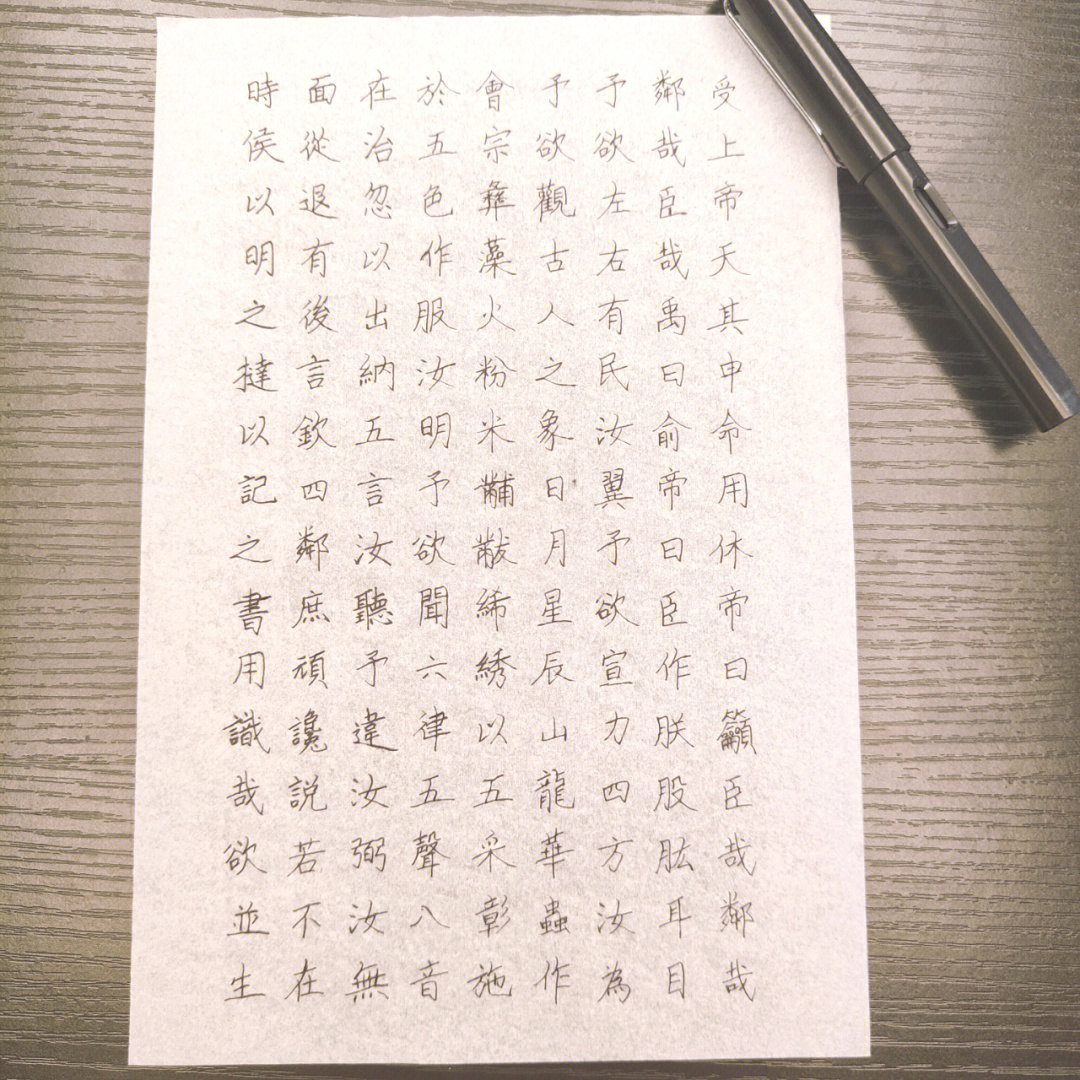 受上帝天其申命用休帝曰籲臣哉鄰哉
鄰哉臣哉禹曰俞帝曰臣作朕股肱耳目
予欲左右有民汝翼予欲宣力四方汝為
予欲觀古人之象日月星辰山龍華蟲作
會宗彝藻火粉米黼黻絺綉以五采彰施
於五色作服汝明予欲聞六律五聲八音
在治忽以出納五言汝聽予違汝弼汝無
面從退有後言欽四鄰庶頑讒説若不在
時侯以明之撻以記之書用識哉欲並生